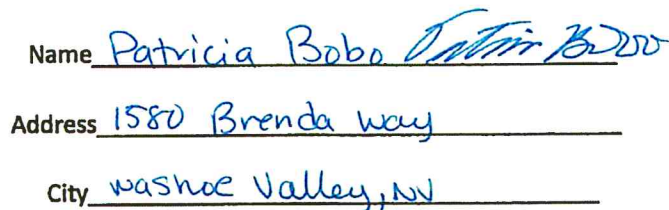 Name Patricia Bobo
Address 1580 Brenda way
City washoe Valley, NV